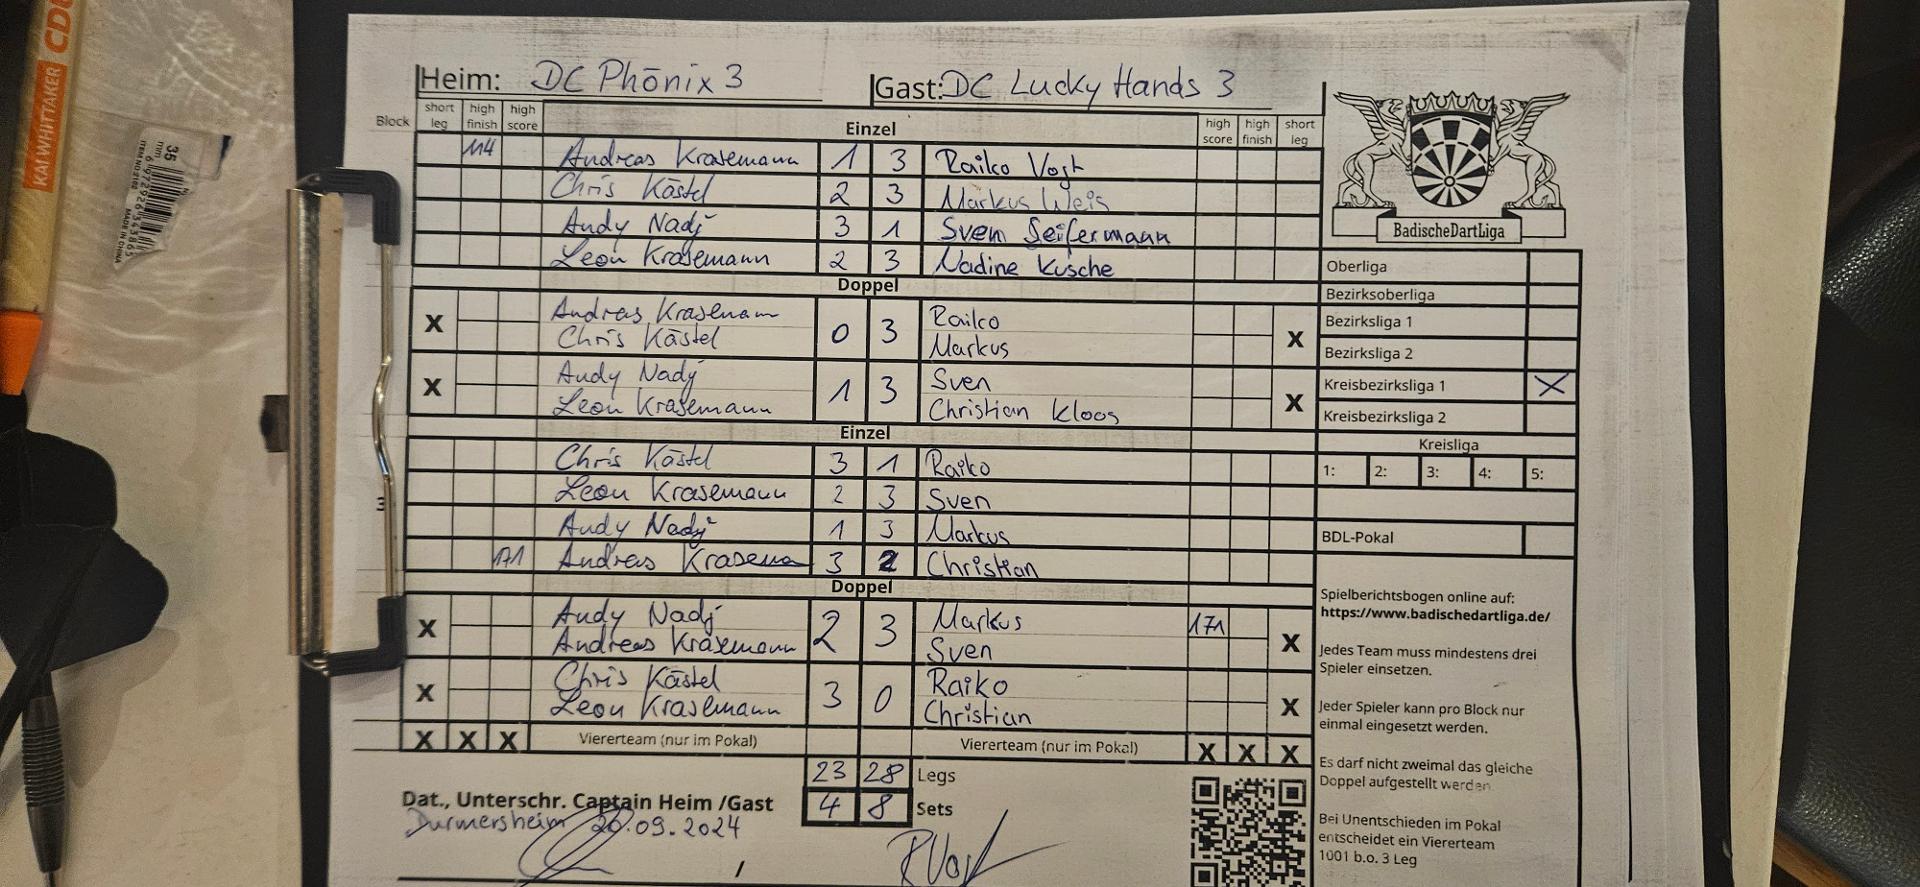 CD
KAI WHITTAKER
35
mm
MADE IN CHINA
Heim: DC Phönix 3 Gast: DC Lucky Hands 3
Block short leg high finish high score Einzel high score high finish short leg
114 Andreas Krasemann 1 3 Raiko Vogt
Chris Kästel 2 3 Markus Weis
Andy Nadj 3 1 Sven Seifermann
Leon Krasemann 2 3 Nadine Kusche
Doppel
X Andreas Krasemann 0 3 Raiko X
Chris Kästel Markus
X Andy Nadj 1 3 Sven X
Leon Krasemann Christian Kloos
Einzel
Chris Kästel 3 1 Raiko
Leon Krasemann 2 3 Sven
3 Andy Nadj 1 3 Markus
171 Andreas Krasema 3 2 Christian
Doppel
X Andy Nadj 2 3 Markus 171 X
Andreas Krasemann Sven
X Chris Kästel 3 0 Raiko X
Leon Krasemann Christian
X X X Viererteam (nur im Pokal) Viererteam (nur im Pokal) X X X
23 28 Legs
Dat., Unterschr. Captain Heim /Gast 4 8 Sets
Durmersheim 20.09.2024
/ RVogt
BadischeDartLiga
Oberliga
Bezirksoberliga
Bezirksliga 1
Bezirksliga 2
Kreisbezirksliga 1 X
Kreisbezirksliga 2
Kreisliga
1: 2: 3: 4: 5:
BDL-Pokal
Spielberichtsbogen online auf:
https://www.badischedartliga.de/
Jedes Team muss mindestens drei
Spieler einsetzen.
Jeder Spieler kann pro Block nur
einmal eingesetzt werden.
Es darf nicht zweimal das gleiche
Doppel aufgestellt werden.
Bei Unentschieden im Pokal
entscheidet ein Viererteam
1001 b.o. 3 Leg